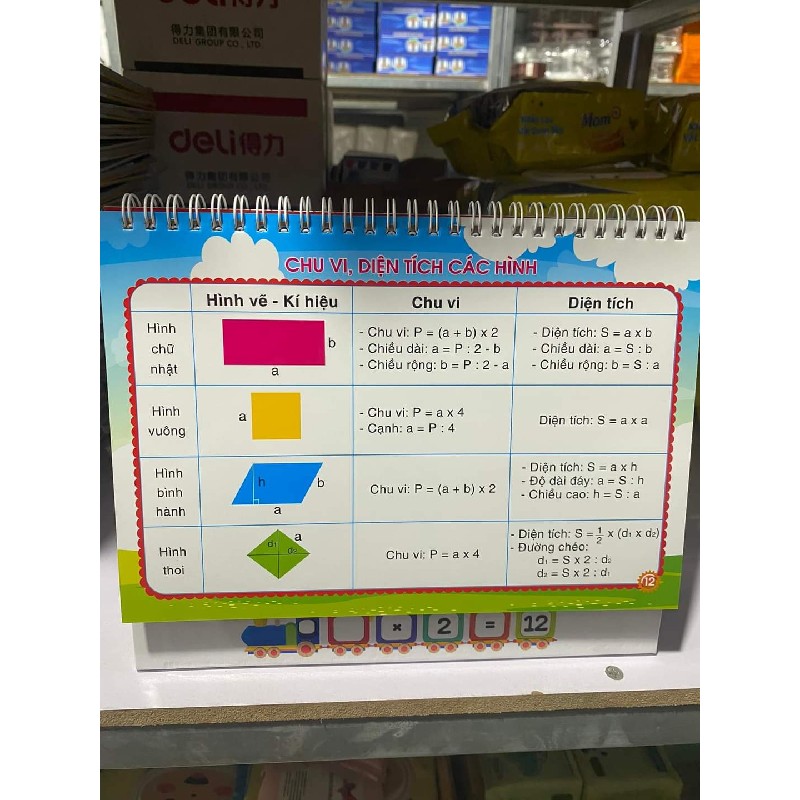 得力集团有限公司
DELI GROUP CO., LTD.
deli得力
得力集团有限公司
CHU VI, DIỆN TÍCH CÁC HÌNH
Hình vẽ - Kí hiệu
Chu vi
Diện tích
Hình chữ nhật
b
a
- Chu vi: P = (a + b) x 2
- Chiều dài: a = P : 2 - b
- Chiều rộng: b = P : 2 - a
- Diện tích: S = a x b
- Chiều dài: a = S : b
- Chiều rộng: b = S : a
Hình vuông
a
- Chu vi: P = a x 4
- Cạnh: a = P : 4
Diện tích: S = a x a
Hình bình hành
h
b
a
Chu vi: P = (a + b) x 2
- Diện tích: S = a x h
- Độ dài đáy: a = S : h
- Chiều cao: h = S : a
Hình thoi
a
d₁
d₂
Chu vi: P = a x 4
- Diện tích: S = 1/2 x (d₁ x d₂)
- Đường chéo:
d₁ = S x 2 : d₂
d₂ = S x 2 : d₁
12
x 2 = 12